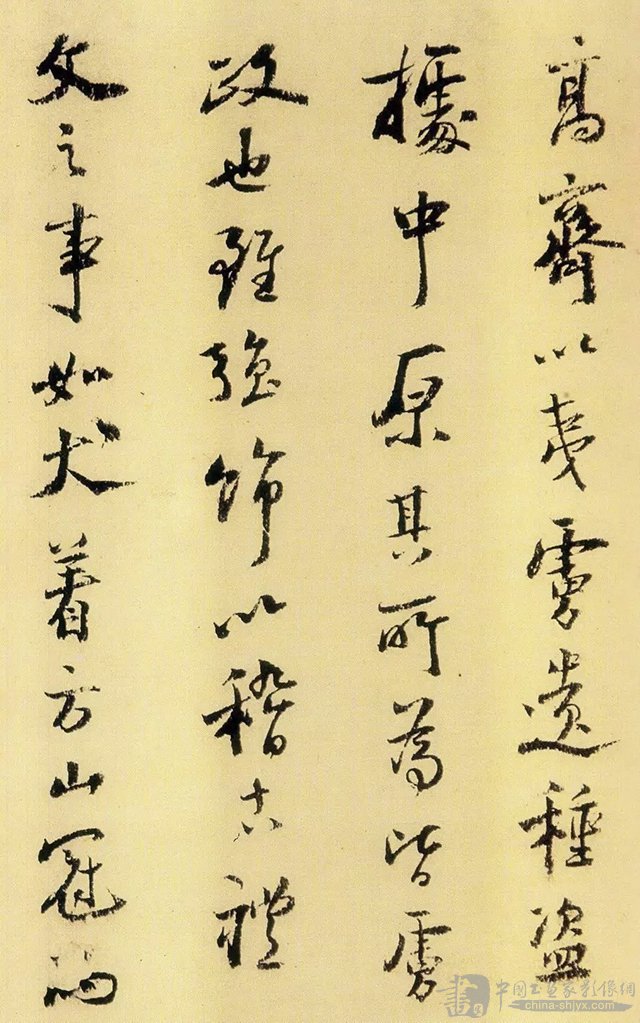 高齊以夷虜遺種盜
據中原其所爲皆虜
政也雖強飾以稽古禮
文之事如犬着方山冠而
中国书画家影像网
china-shjyx.com